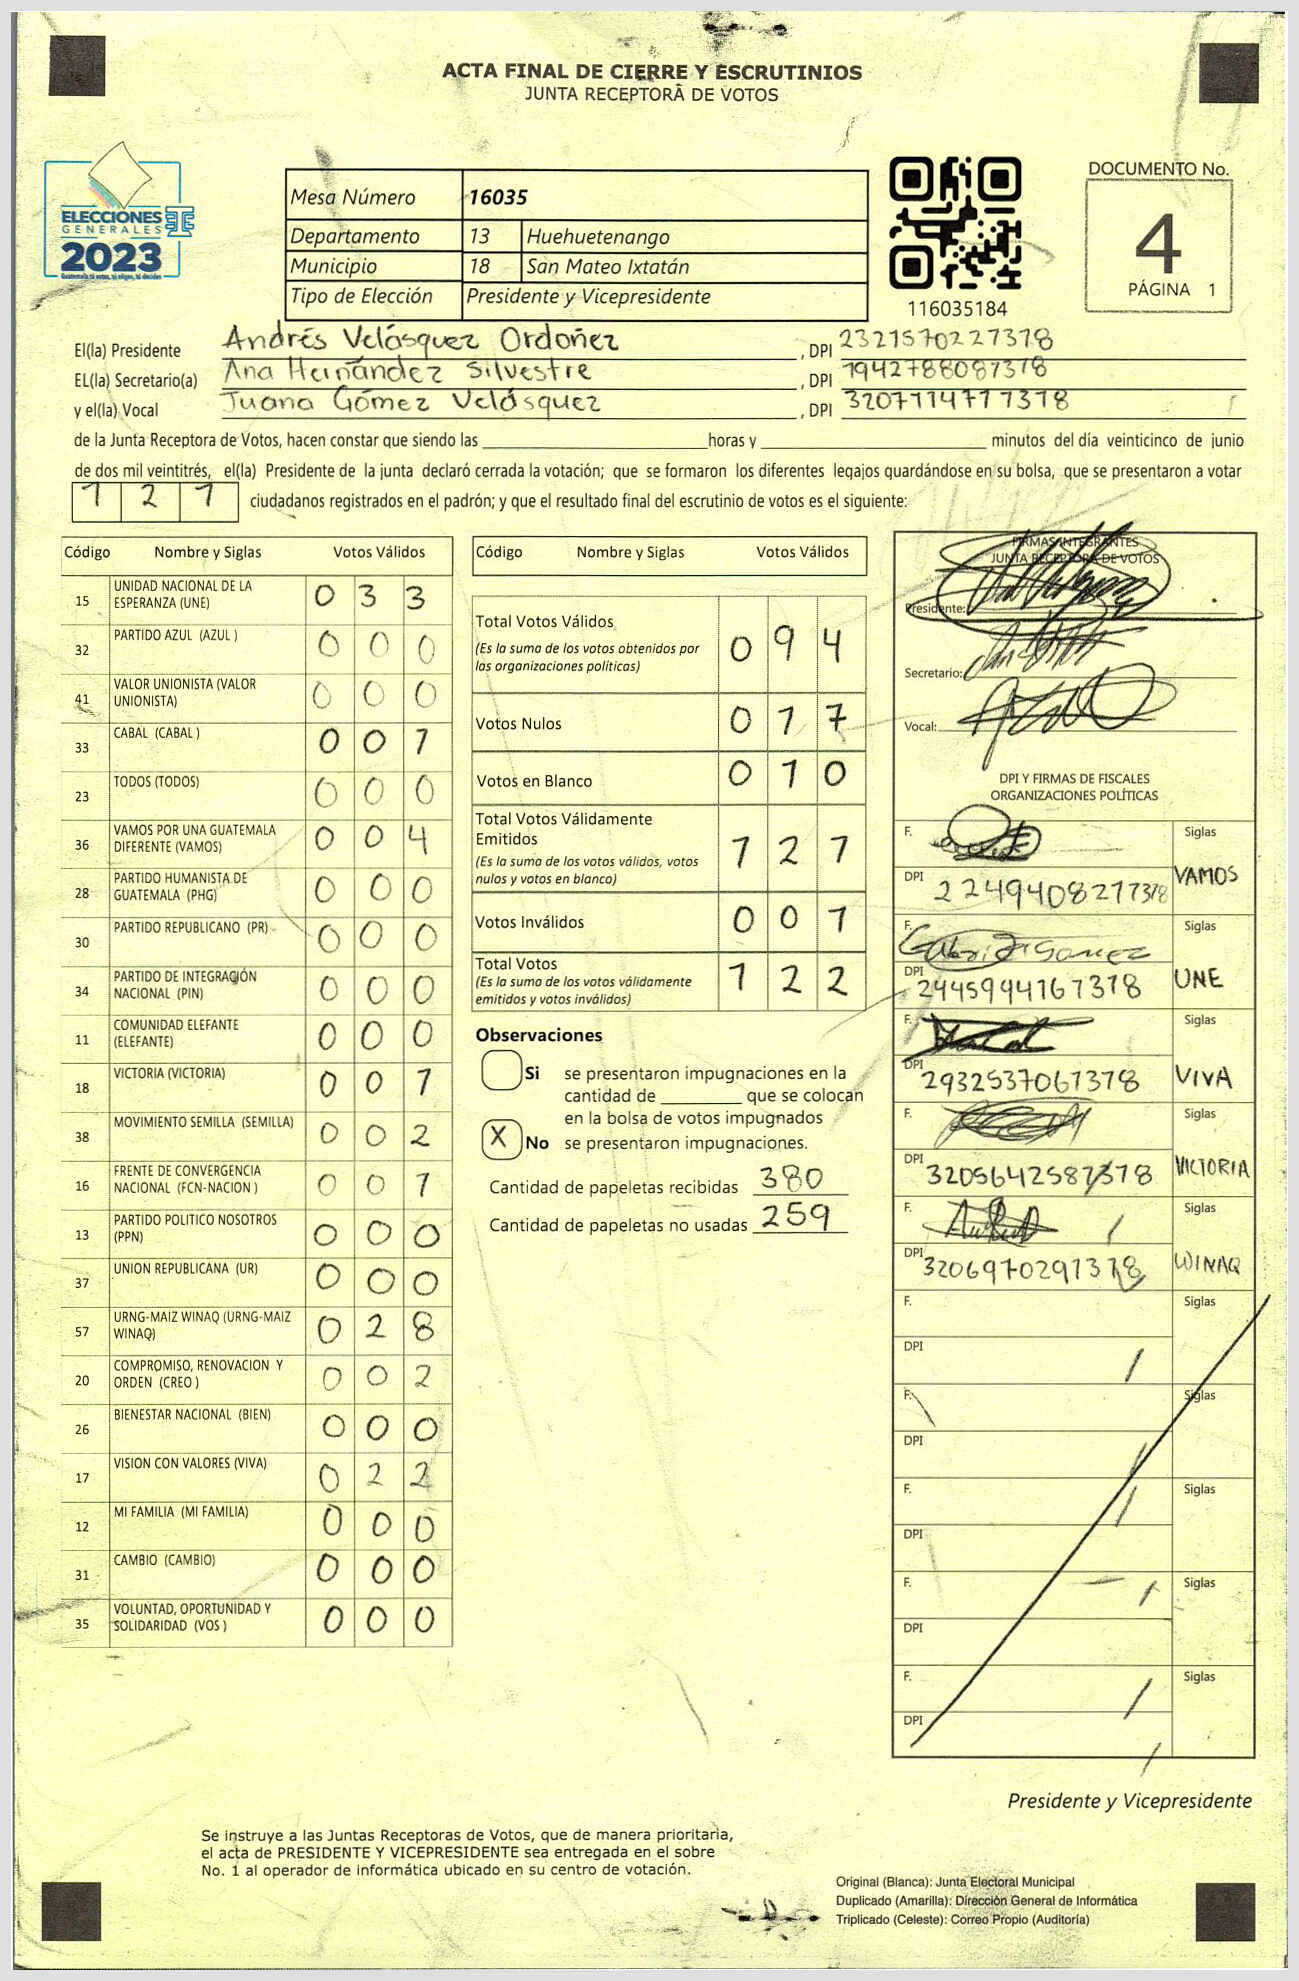 ACTA FINAL DE CIERRE Y ESCRUTINIOS
JUNTA RECEPTORA DE VOTOS
ELECCIONES
GENERALES
2023
Guatemala tú votas, tú eliges, tú decides
TSE
Mesa Número 16035
Departamento 13 Huehuetenango
Municipio 18 San Mateo Ixtatán
Tipo de Elección Presidente y Vicepresidente
116035184
DOCUMENTO No.
4
PÁGINA 1
El(la) Presidente Andrés Velásquez Ordoñez, DPI 2321570227318
EL(la) Secretario(a) Ana Hernández Silvestre, DPI 1942788081318
y el(la) Vocal Juana Gómez Velásquez, DPI 3207114711318
de la Junta Receptora de Votos, hacen constar que siendo las ____ horas y ____ minutos del día veinticinco de junio
de dos mil veintitrés, el(la) Presidente de la junta declaró cerrada la votación; que se formaron los diferentes legajos quardándose en su bolsa, que se presentaron a votar
1 2 1 ciudadanos registrados en el padrón; y que el resultado final del escrutinio de votos es el siguiente:
Código Nombre y Siglas Votos Válidos
15 UNIDAD NACIONAL DE LA ESPERANZA (UNE) 0 3 3
32 PARTIDO AZUL (AZUL ) 0 0 0
41 VALOR UNIONISTA (VALOR UNIONISTA) 0 0 0
33 CABAL (CABAL ) 0 0 1
23 TODOS (TODOS) 0 0 0
36 VAMOS POR UNA GUATEMALA DIFERENTE (VAMOS) 0 0 4
28 PARTIDO HUMANISTA DE GUATEMALA (PHG) 0 0 0
30 PARTIDO REPUBLICANO (PR) 0 0 0
34 PARTIDO DE INTEGRACIÓN NACIONAL (PIN) 0 0 0
11 COMUNIDAD ELEFANTE (ELEFANTE) 0 0 0
18 VICTORIA (VICTORIA) 0 0 1
38 MOVIMIENTO SEMILLA (SEMILLA) 0 0 2
16 FRENTE DE CONVERGENCIA NACIONAL (FCN-NACION ) 0 0 1
13 PARTIDO POLITICO NOSOTROS (PPN) 0 0 0
37 UNION REPUBLICANA (UR) 0 0 0
57 URNG-MAIZ WINAQ (URNG-MAIZ WINAQ) 0 2 8
20 COMPROMISO, RENOVACION Y ORDEN (CREO ) 0 0 2
26 BIENESTAR NACIONAL (BIEN) 0 0 0
17 VISION CON VALORES (VIVA) 0 2 2
12 MI FAMILIA (MI FAMILIA) 0 0 0
31 CAMBIO (CAMBIO) 0 0 0
35 VOLUNTAD, OPORTUNIDAD Y SOLIDARIDAD (VOS ) 0 0 0
Código Nombre y Siglas Votos Válidos
Total Votos Válidos 0 9 4
(Es la suma de los votos obtenidos por
las organizaciones políticas)
Votos Nulos 0 1 7
Votos en Blanco 0 1 0
Total Votos Válidamente
Emitidos 1 2 1
(Es la suma de los votos válidos, votos
nulos y votos en blanco)
Votos Inválidos 0 0 1
Total Votos 1 2 2
(Es la suma de los votos válidamente
emitidos y votos inválidos)
Observaciones
Si se presentaron impugnaciones en la
cantidad de ____ que se colocan
en la bolsa de votos impugnados
X No se presentaron impugnaciones.
Cantidad de papeletas recibidas 380
Cantidad de papeletas no usadas 259
FIRMAS INTEGRANTES
JUNTA RECEPTORA DE VOTOS
Presidente:
Secretario:
Vocal:
DPI Y FIRMAS DE FISCALES
ORGANIZACIONES POLÍTICAS
F. Siglas
DPI 2249408271318 VAMOS
F. Siglas
DPI 2445944161318 UNE
F. Siglas
DPI 2932537061318 VIVA
F. Siglas
DPI 3205642581318 VICTORIA
F. Siglas
DPI 3206970291318 WINAQ
F. Siglas
DPI
F. Siglas
DPI
F. Siglas
DPI
F. Siglas
DPI
F. Siglas
DPI
Presidente y Vicepresidente
Se instruye a las Juntas Receptoras de Votos, que de manera prioritaria,
el acta de PRESIDENTE Y VICEPRESIDENTE sea entregada en el sobre
No. 1 al operador de informática ubicado en su centro de votación.
Original (Blanca): Junta Electoral Municipal
Duplicado (Amarilla): Dirección General de Informática
Triplicado (Celeste): Correo Propio (Auditoría)